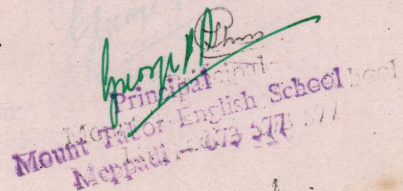 Principal
Mount Tabor English School
Meppadi - 673 577